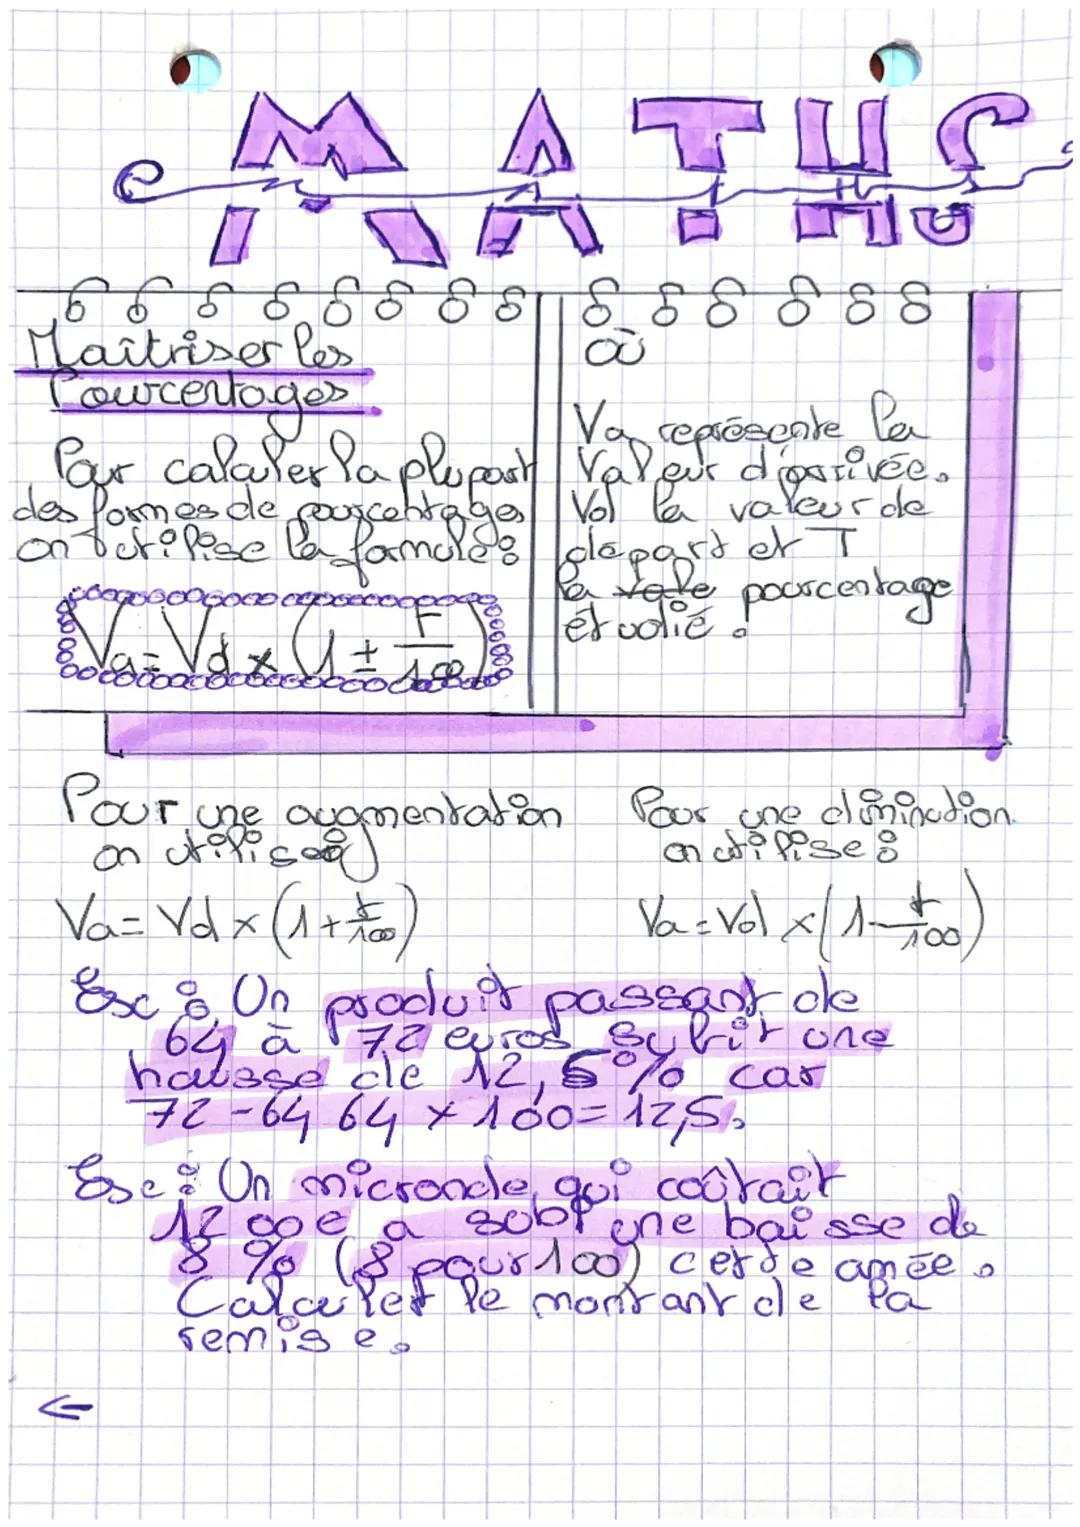 MATHS
Maîtriser les
Pourcentages
Pour calculer la plupart
des formes de pourcentages
on utilise la formule :
Va = Vd × (1 ± T/100)
où
Va représente la
Valeur d'arrivée.
Vd la valeur de
départ et T
la pourcentage
étudié.
Pour une augmentation
on utilise :
Va = Vd × (1 + t/100)
Pour une diminution
on utilise :
Va = Vd × (1 - t/100)
Ex : Un produit passant de
64 à 72 euros subit une
hausse de 12,5% car
72-64 64 × 100 = 12,5.
Ex : Un microonde qui coûtait
1200€ a subi une baisse de
8 % (8 pour 100) cette année.
Calculer le montant de la
remise.
←